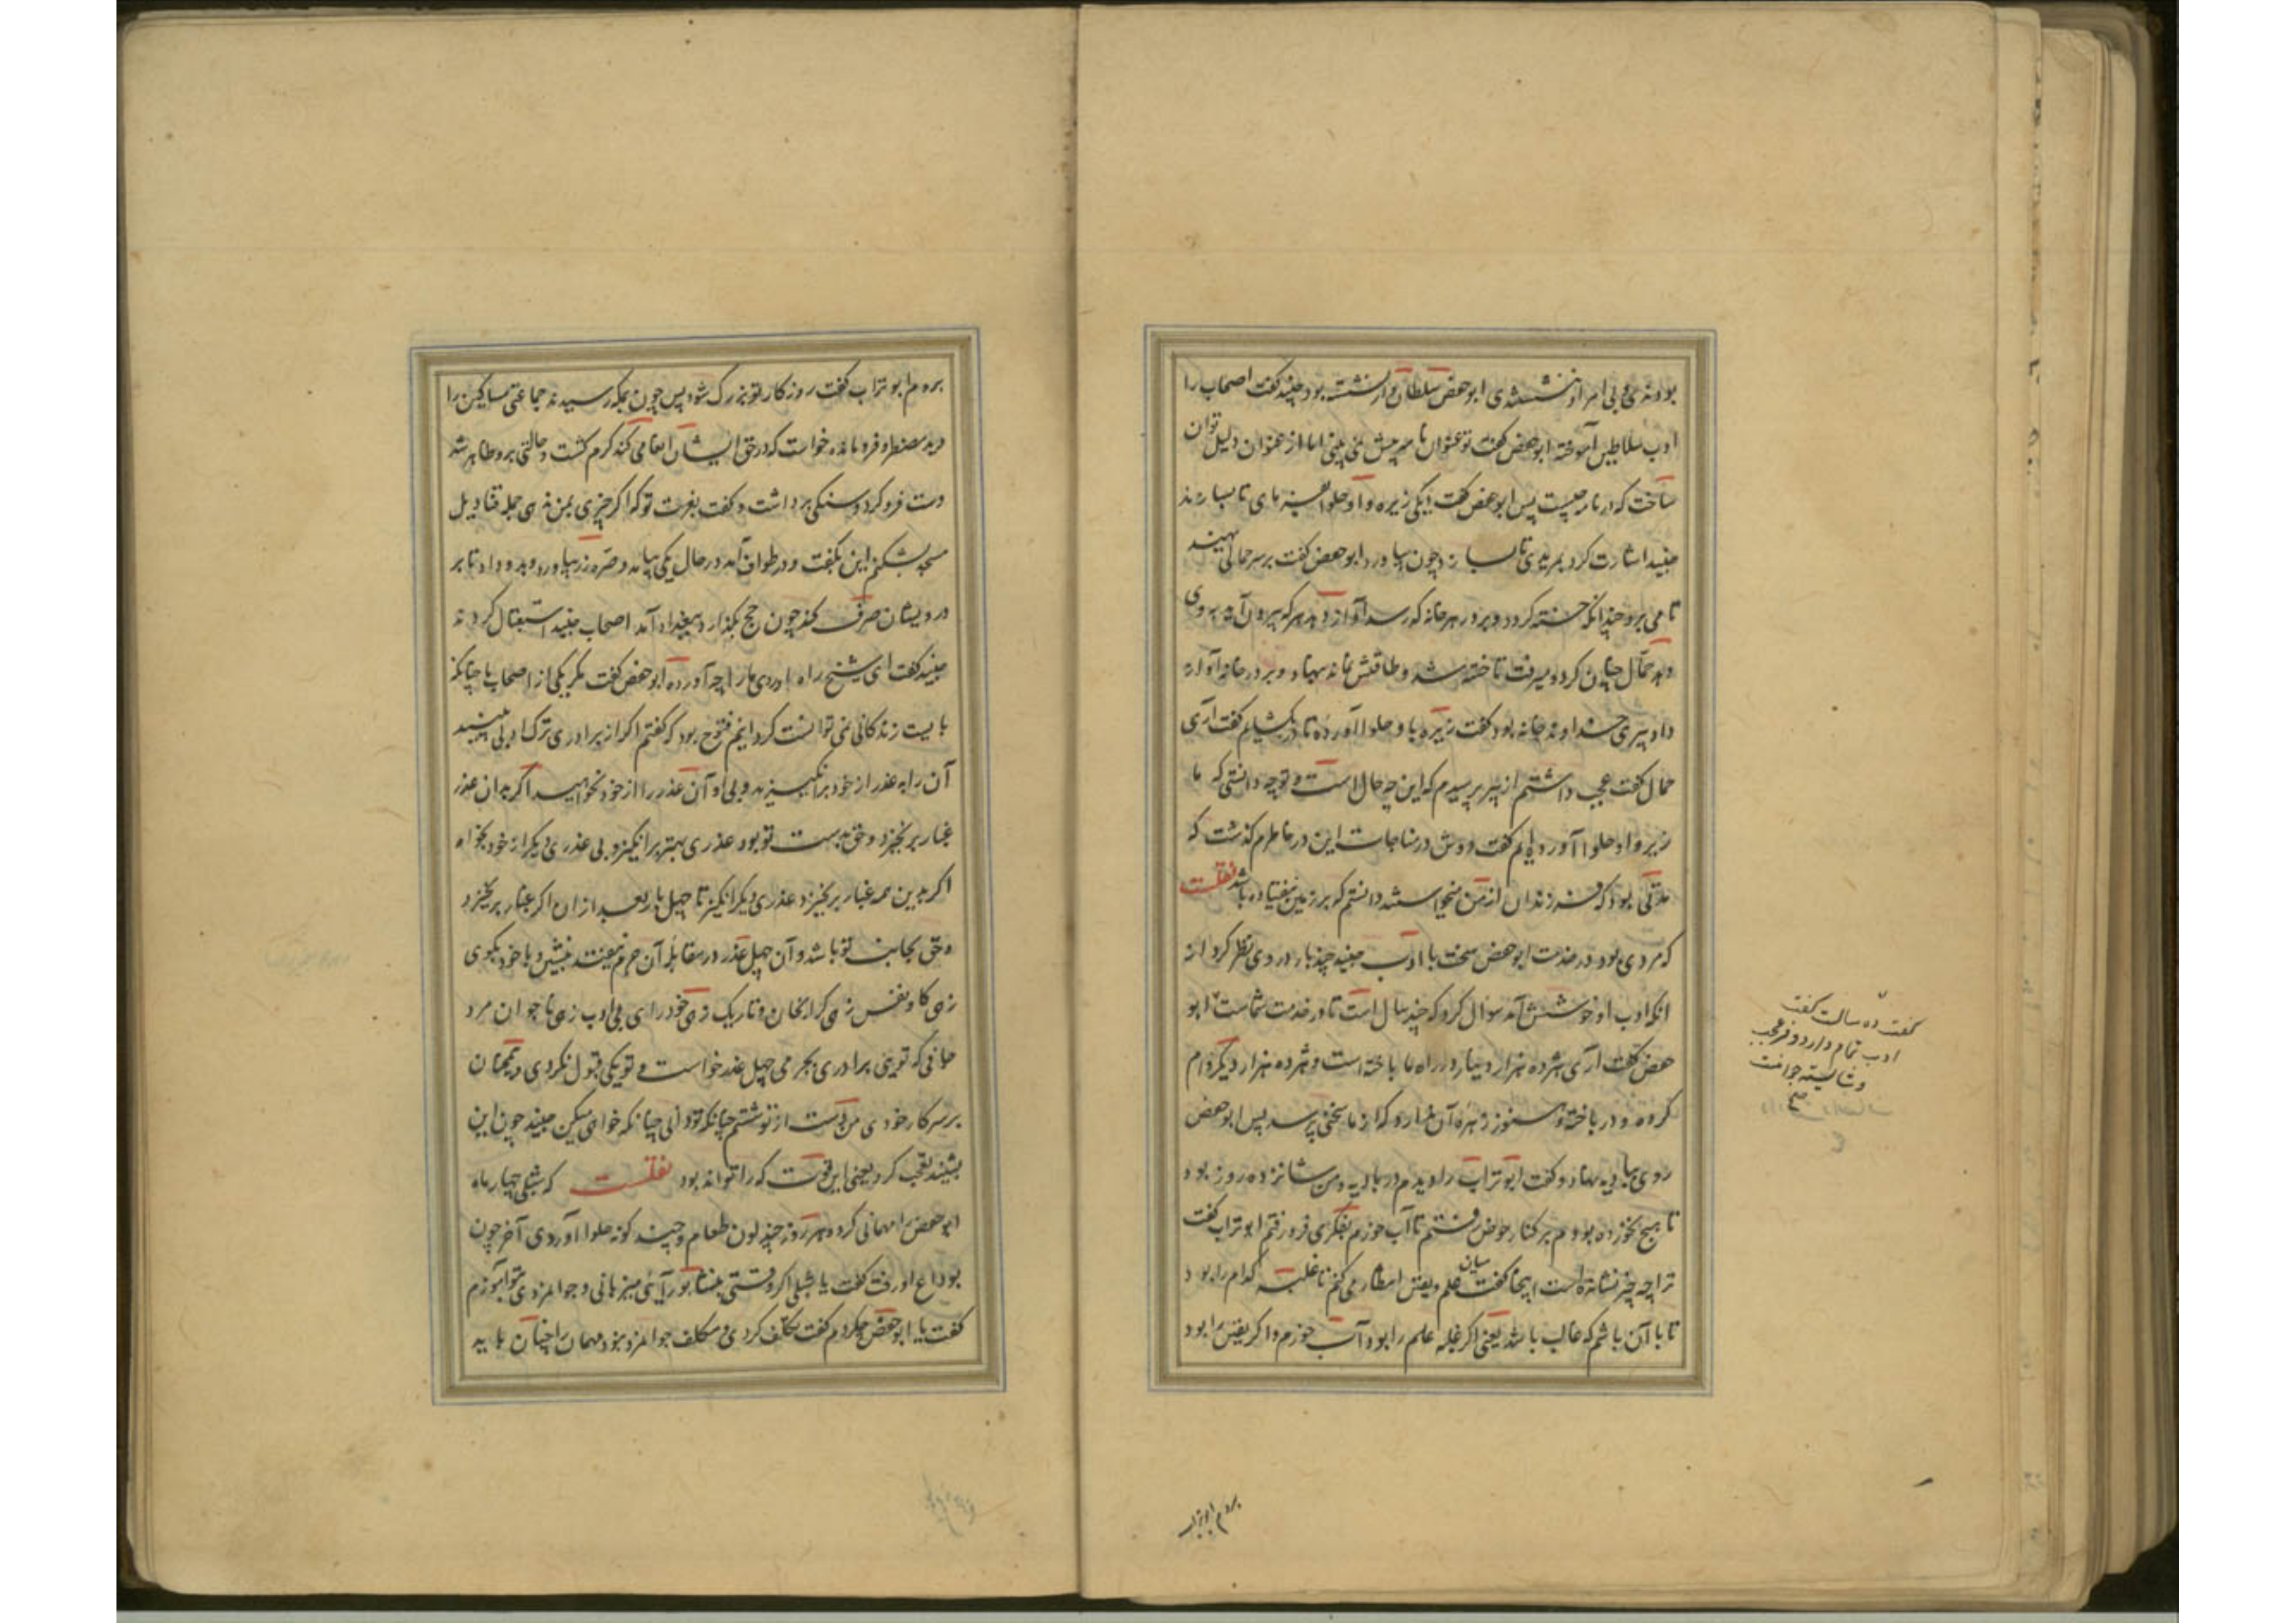 بودندی و بی امر او ننشستندی ابوحفص سلطان وار نشسته بود جنید گفت اصحاب را
ادب سلاطین آموخته ابوحفص گفت تو عنوان نامه بیش نمی بینی اما از عنوان دلیل توان
ساخت که در نامه چیست پس ابوحفص گفت دیکی زیره وا و حلوا بفرمای تا بسازند
جنید اشارت کرد بمریدی تا بسازد چون بیاورد ابوحفص گفت بر سر حمالی نهید
تا می برد چندانکه خسته کردد و بر در هر خانه که رسد آواز دهد هر که بیرون آید بوی
دهد حمال چنان کرد و میرفت تا خسته شد و طاقتش نماند بنهاد و بر در خانه آواز
داد پیری خداوند خانه بود گفت زیره با و حلوا آورده تا در بکشایم گفت آری
حمال گفت عجب داشتم از پیر پرسیدم که این چه حال است و تو چه دانستی که ما
زیره وا و حلوا آورده ایم گفت دوش در مناجات این در خاطرم گذشت که
مدتی بود که فرزندان از من میخواستند دانستم که بر زمین نیفتاده باشد نقلست
که مردی بود در خدمت ابوحفص سخت با ادب جنید چند بار در وی نظر کرد از
انکه ادب او خوشش آمد سوال کرد که چند سال است تا در خدمت شماست ابو
حفص گفت آری هژده هزار دینار در راه ما باخته است و هژده هزار دیگر وام
کرده و در باخته و هنوز زهره آن ندارد که از ما سخنی پرسد پس ابوحفص
روی ببادیه نهاد و گفت ابوتراب را دیدم در بادیه و من شانزده روز بود
تا هیچ نخورده بودم بر کنار حوض رفتم تا آب خورم بفکری فرو رفتم ابوتراب گفت
ترا چه چیز نشانده است اینجا گفت میان علم و یقین انتظار می کنم تا غلبه کدام را بود
تا با آن باشم که غالب باشد یعنی اگر غلبه علم را بود آب خورم و اگر یقین را بود
گفت ده سالست گفت
ادب تمام دارد و فر عجب
و شایسته جوانیست
صح
بروم ابوتراب
بروم ابوتراب گفت روزکار تو بزرگ شود پس چون بمکه رسیدند جماعتی مساکین را
دید مضطر و فرومانده خواست که در حق ایشان انعامی کند گرم گشت و حالتی برو ظاهر شد
دست فرو کرد و سنگی برداشت و گفت بعزت تو که اگر چیزی بمن ندهی جمله قنادیل
مسجد بشکنم این بگفت و در طواف آمد در حال یکی بیامد و صره زر بیاورد و بدو داد تا بر
درویشان صرف کند چون حج بگذارد ببغداد آمد اصحاب جنید استقبال کردند
جنید گفت ای شیخ راه آوردی ما را چه آورده ابوحفص گفت مگر یکی از اصحاب ما چنانکه
بایست زندگانی نمی توانست کرد اینم فتوح بود که گفتم اگر از برادری ترک ادبی بینید
آن را به عذر از خود برانگیزید و بی او آن عذر را از خود بخواهید اگر بدان عذر
غبار برنخیزد و حق بدست تو بود عذری بهتر برانگیز و بی عذری دیگر از خود بخواه
اگر بدین همه غبار برنخیزد عذری دیگر انگیز تا چهل بار بعد از ان اگر غبار برنخیزد
و حق بجانب تو باشد و آن چهل عذر در مقابله آن جرم نیفتد بنشین و با خود بگوی
زهی گاو نفس زهی گران جان و تاریک زهی خودرای بی ادب زهی ناجوان مرد
جافی که توئی برادری بجرمی چهل عذر خواست و تو یکی قبول نکردی و همچنان
بر سر کار خودی من دست از تو شستم چنانکه تو دانی چنانکه خواهی میکن جنید چون این
بشنید تعجب کرد یعنی این قوت که را تواند بود نقلست که شبلی چهار ماه
ابوحفص را مهمانی کرد هر روز چند لون طعام و چند گونه حلوا آوردی آخر چون
بوداع او رفت گفت یا شبلی اگر وقتی بنشابور آیئی میزبانی و جوانمردی بتو آموزم
گفت یا ابوحفص چه کردم گفت تکلف کردی و متکلف جوانمرد نبود مهمان را چنان باید